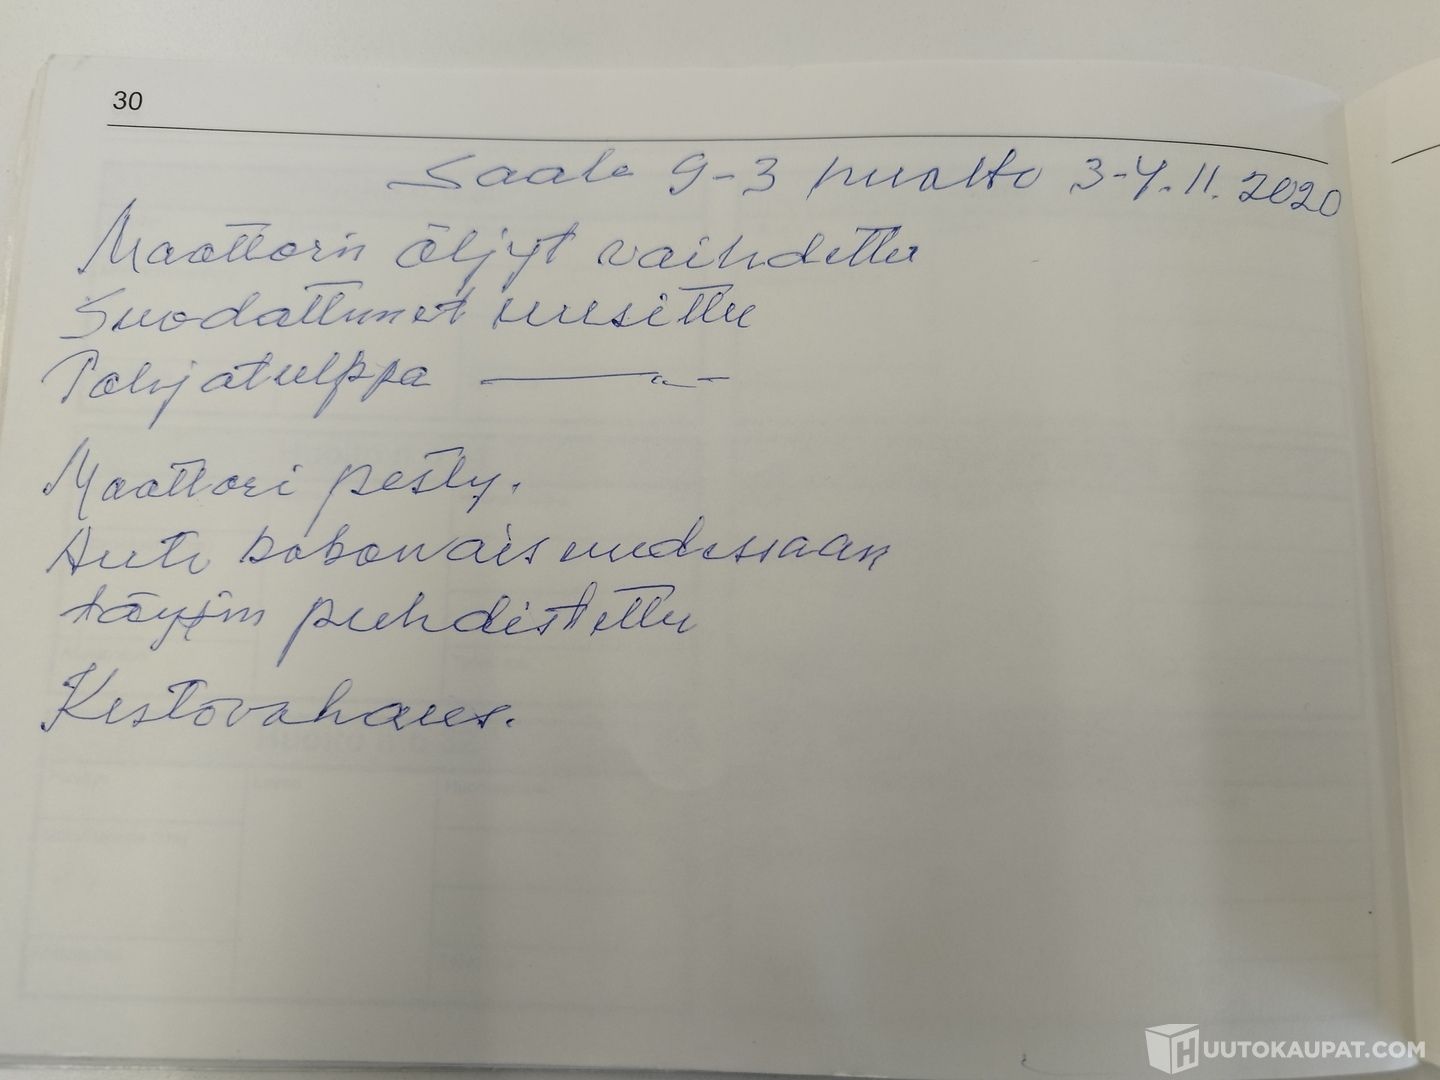 30
Saab 9-3 huolto 3-4.11.2020
Moottorin öljyt vaihdettu
Suodattimet uusittu
Pohjatulppa —"—
Moottori pesty.
Auto kokonaisuudessaan
täysin puhdistettu
Kestovahaus.
HUUTOKAUPAT.COM